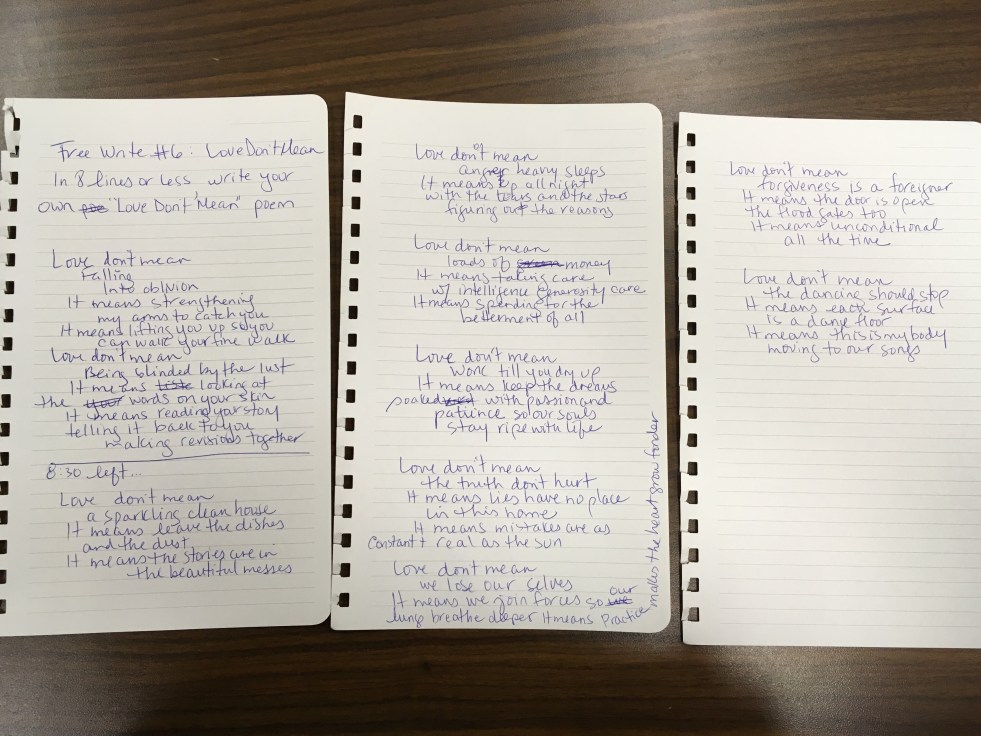 Free Write #6: Love Don't Mean
In 8 lines or less write your
own poe "Love Don't Mean" poem
Love don't mean
Falling
Into oblivion
It means strengthening
my arms to catch you
It means lifting you up so you
can walk your fine walk
Love don't mean
Being blinded by the lust
It means looking at
the your words on your skin
It means reading your story
telling it back to you
making revisions together
8:30 left...
Love don't mean
a sparkling clean house
It means leave the dishes
and the dust
It means the stories are in
the beautiful messes
Love don't mean
of anger heavy sleeps
It means up all night
with the tears and the stars
figuring out the reasons
Love don't mean
loads of money
It means taking care
w/ intelligence generosity care
It means spending for the
betterment of all
Love don't mean
work till you dry up
It means keep the dreams
soaked with passion and
patience so our souls
stay ripe with life
Love don't mean
the truth don't hurt
It means lies have no place
in this home
It means mistakes are as
constant + real as the sun
Love don't mean
we lose our selves
It means we join forces so we our
lungs breathe deeper It means Practice
makes the heart grow fonder
Love don't mean
forgiveness is a foreigner
It means the door is open
the flood gates too
It means unconditional
all the time
Love don't mean
the dancing should stop
It means each surface
is a dance floor
It means this is my body
moving to our songs